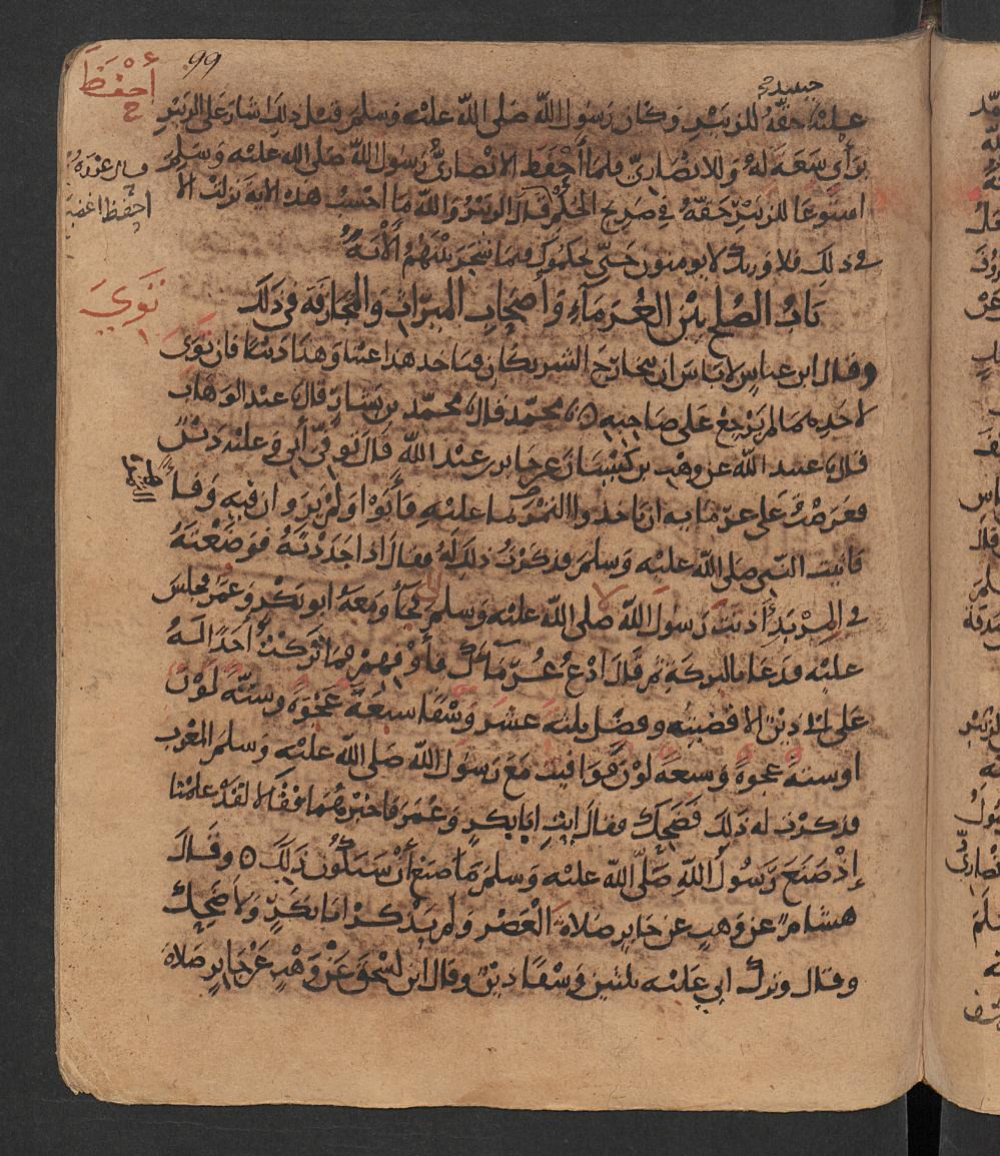 99
أحفظ
حينئذ
عليه حقه للزبير وكان رسول الله صلى الله عليه وسلم قبل ذلك اشار على الزبير
براي سعة له وللانصاري فلما أحفظ الانصاري رسول الله صلى الله عليه وسلم
استوعا للزبير حقه في صريح الحكم قال الزبير والله ما احسب هذه الاية نزلت الا
في ذلك فلا وربك لا يومنون حتى يحكموك فيما شجر بينهم الاية
باب الصلح بين الغرماء وأصحاب الميراث والمجازفة في ذلك
وقال ابن عباس لا باس ان يتخارج الشريكان فياخذ هذا عينا وهذا دينا فان توي
لاحدهما لم يرجع على صاحبه ٥ محمد قال محمد بن بشار قال عبد الوهاب
قال عبيد الله عن وهب بن كيسان عن جابر بن عبد الله قال توفي أبي وعليه دين
فعرضت على غرمايه ان ياخذوا التمر بما عليه فأبوا ولم يروا ان فيه وفاء
فاتيت النبي صلى الله عليه وسلم فذكرت ذلك له فقال اذا جددته فوضعته
في المربد أذنت رسول الله صلى الله عليه وسلم فجأ ومعه ابو بكر وعمر فجلس
عليه فدعا بالبركة ثم قال ادع غرماك فأوفهم فما تركت أحدا له
على ابي دين الا قضيته وفضل ثلثة عشر وسقا سبعة عجوة وستة لون
او ستة عجوة وسبعة لون فوافيت مع رسول الله صلى الله عليه وسلم المغرب
فذكرت له ذلك فضحك فقال ايت ابا بكر وعمر فاخبرهما فقالا لقد علمنا
إذ صنع رسول الله صلى الله عليه وسلم ما صنع أن سيكون ذلك ٥ وقال
هشام عن وهب عن جابر صلاة العصر ولم يذكر ابا بكر ولا ضحك
وقال وترك ابي عليه ثلثين وسقا دين وقال ابن اسحق عن وهب عن جابر صلاة
احفظ اغضب
توي